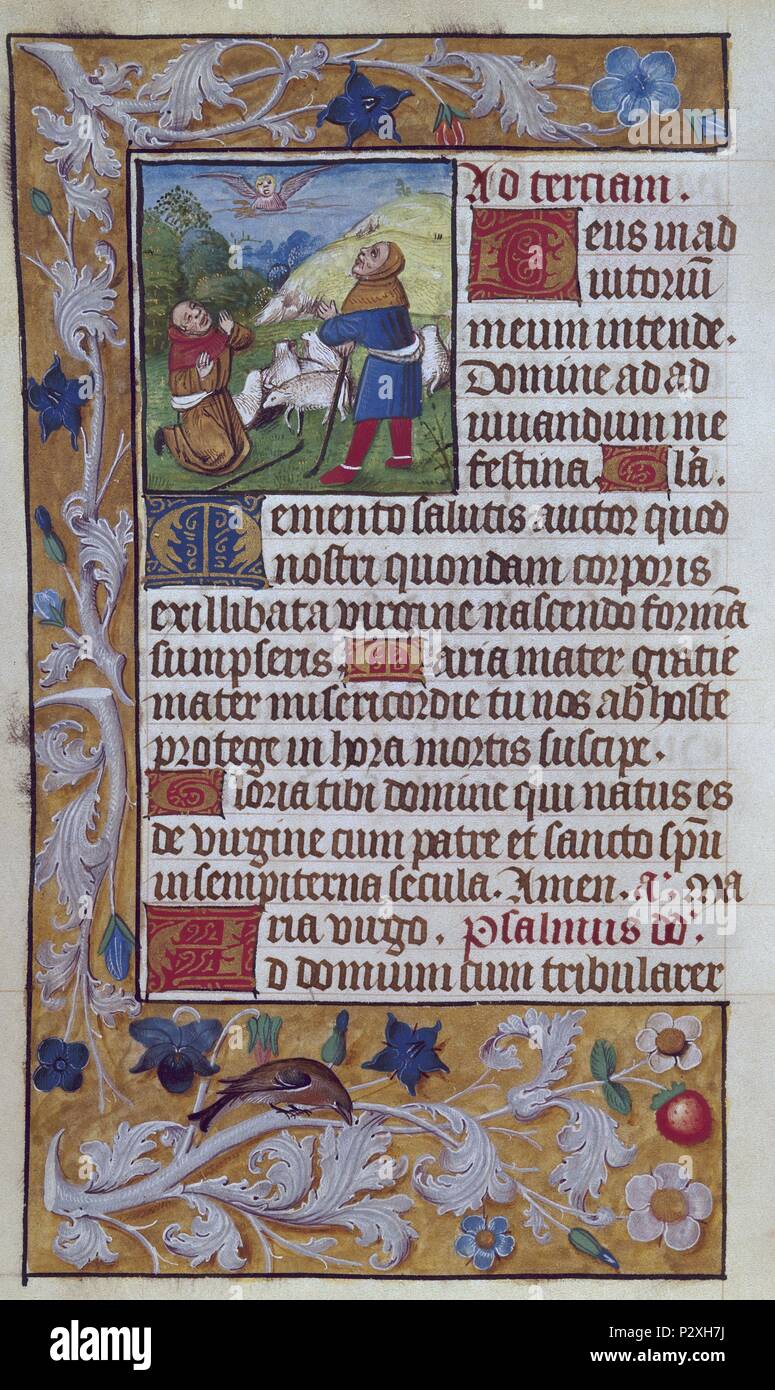 Ad terciam.
Deus in ad
iutoriū
meum intende.
Domine ad ad
iuuandum me
festina. Gl'a.
Memento salutis auctor quod
nostri quondam corporis
ex illibata virgine nascendo formā
sumpseris. Maria mater gratie
mater misericordie tu nos ab hoste
protege in hora mortis suscipe.
Gloria tibi domine qui natus es
de virgine cum patre et sancto sp̄u
in sempiterna secula. Amen. a: Ma
ria virgo. psalmus dd:
Ad domium cum tribularer
a
alamy
alamy
Image ID: P2XH7J
www.alamy.com